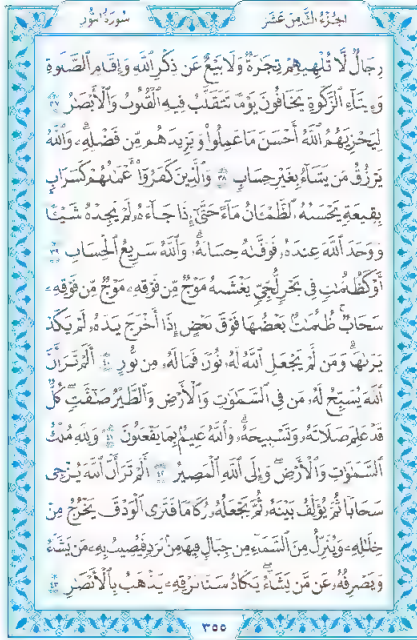 سُورَةُ النُّورِ
الجُزْءُ الثَّامِنَ عَشَرَ
رِجَالٌ لَّا تُلْهِيهِمْ تِجَٰرَةٌ وَلَا بَيْعٌ عَن ذِكْرِ ٱللَّهِ وَإِقَامِ ٱلصَّلَوٰةِ
وَإِيتَآءِ ٱلزَّكَوٰةِ يَخَافُونَ يَوْمًا تَتَقَلَّبُ فِيهِ ٱلْقُلُوبُ وَٱلْأَبْصَٰرُ ٣٧
لِيَجْزِيَهُمُ ٱللَّهُ أَحْسَنَ مَا عَمِلُوا۟ وَيَزِيدَهُم مِّن فَضْلِهِۦ وَٱللَّهُ
يَرْزُقُ مَن يَشَآءُ بِغَيْرِ حِسَابٍ ٣٨ وَٱلَّذِينَ كَفَرُوٓا۟ أَعْمَٰلُهُمْ كَسَرَابٍ
بِقِيعَةٍ يَحْسَبُهُ ٱلظَّمْـَٔانُ مَآءً حَتَّىٰٓ إِذَا جَآءَهُۥ لَمْ يَجِدْهُ شَيْـًٔا
وَوَجَدَ ٱللَّهَ عِندَهُۥ فَوَفَّىٰهُ حِسَابَهُۥ وَٱللَّهُ سَرِيعُ ٱلْحِسَابِ ٣٩
أَوْ كَظُلُمَٰتٍ فِى بَحْرٍ لُّجِّىٍّ يَغْشَىٰهُ مَوْجٌ مِّن فَوْقِهِۦ مَوْجٌ مِّن فَوْقِهِۦ
سَحَابٌ ظُلُمَٰتٌۢ بَعْضُهَا فَوْقَ بَعْضٍ إِذَآ أَخْرَجَ يَدَهُۥ لَمْ يَكَدْ
يَرَىٰهَا وَمَن لَّمْ يَجْعَلِ ٱللَّهُ لَهُۥ نُورًا فَمَا لَهُۥ مِن نُّورٍ ٤٠ أَلَمْ تَرَ أَنَّ
ٱللَّهَ يُسَبِّحُ لَهُۥ مَن فِى ٱلسَّمَٰوَٰتِ وَٱلْأَرْضِ وَٱلطَّيْرُ صَٰٓفَّٰتٍ كُلٌّ
قَدْ عَلِمَ صَلَاتَهُۥ وَتَسْبِيحَهُۥ وَٱللَّهُ عَلِيمٌۢ بِمَا يَفْعَلُونَ ٤١ وَلِلَّهِ مُلْكُ
ٱلسَّمَٰوَٰتِ وَٱلْأَرْضِ وَإِلَى ٱللَّهِ ٱلْمَصِيرُ ٤٢ أَلَمْ تَرَ أَنَّ ٱللَّهَ يُزْجِى
سَحَابًا ثُمَّ يُؤَلِّفُ بَيْنَهُۥ ثُمَّ يَجْعَلُهُۥ رُكَامًا فَتَرَى ٱلْوَدْقَ يَخْرُجُ مِنْ
خِلَٰلِهِۦ وَيُنَزِّلُ مِنَ ٱلسَّمَآءِ مِن جِبَالٍ فِيهَا مِنۢ بَرَدٍ فَيُصِيبُ بِهِۦ مَن يَشَآءُ
وَيَصْرِفُهُۥ عَن مَّن يَشَآءُ يَكَادُ سَنَا بَرْقِهِۦ يَذْهَبُ بِٱلْأَبْصَٰرِ ٤٣
٣٥٥